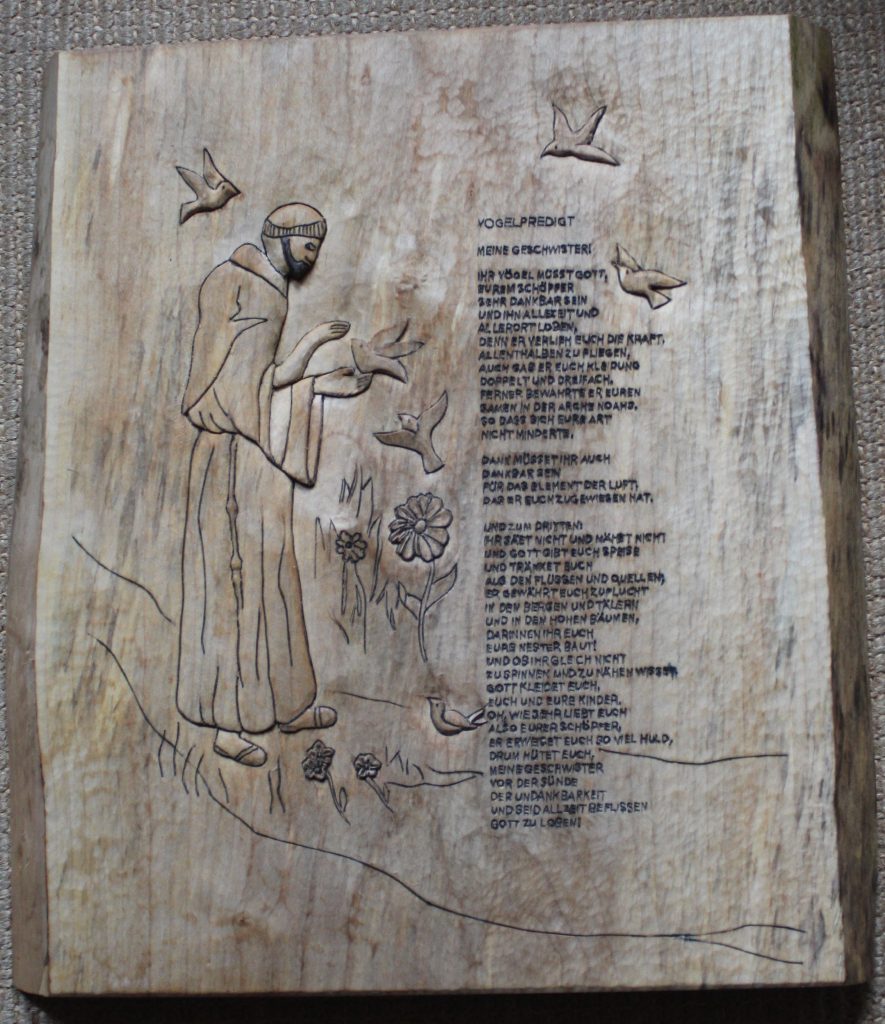 VOGELPREDIGT
MEINE GESCHWISTER!
IHR VÖGEL MÜSST GOTT,
EUREM SCHÖPFER
SEHR DANKBAR SEIN
UND IHN ALLEZEIT UND
ALLERORT LOBEN,
DENN ER VERLIEH EUCH DIE KRAFT,
ALLENTHALBEN ZU FLIEGEN,
AUCH GAB ER EUCH KLEIDUNG
DOPPELT UND DREIFACH.
FERNER BEWAHRTE ER EUREN
SAMEN IN DER ARCHE NOAHS,
SO DASS SICH EURE ART
NICHT MINDERTE.
DANK MÜSSET IHR AUCH
DANKBAR SEIN
FÜR DAS ELEMENT DER LUFT,
DAS ER EUCH ZUGEWIESEN HAT.
UND ZUM DRITTEN:
IHR SÄET NICHT UND MÄHET NICHT
UND GOTT GIBT EUCH SPEISE
UND TRÄNKET EUCH
AUS DEN FLÜSSEN UND QUELLEN,
ER GEWÄHRT EUCH ZUFLUCHT
IN DEN BERGEN UND TÄLERN
UND IN DEN HOHEN BÄUMEN,
DARINNEN IHR EUCH
EURE NESTER BAUT!
UND OB IHR GLEICH NICHT
ZU SPINNEN UND ZU NÄHEN WISSET,
GOTT KLEIDET EUCH,
EUCH UND EURE KINDER.
OH, WIE SEHR LIEBT EUCH
ALSO EURER SCHÖPFER,
ER ERWEISET EUCH SO VIEL HULD,
DRUM HÜTET EUCH,
MEINE GESCHWISTER
VOR DER SÜNDE
DER UNDANKBARKEIT
UND SEID ALLZEIT BEFLISSEN
GOTT ZU LOBEN!